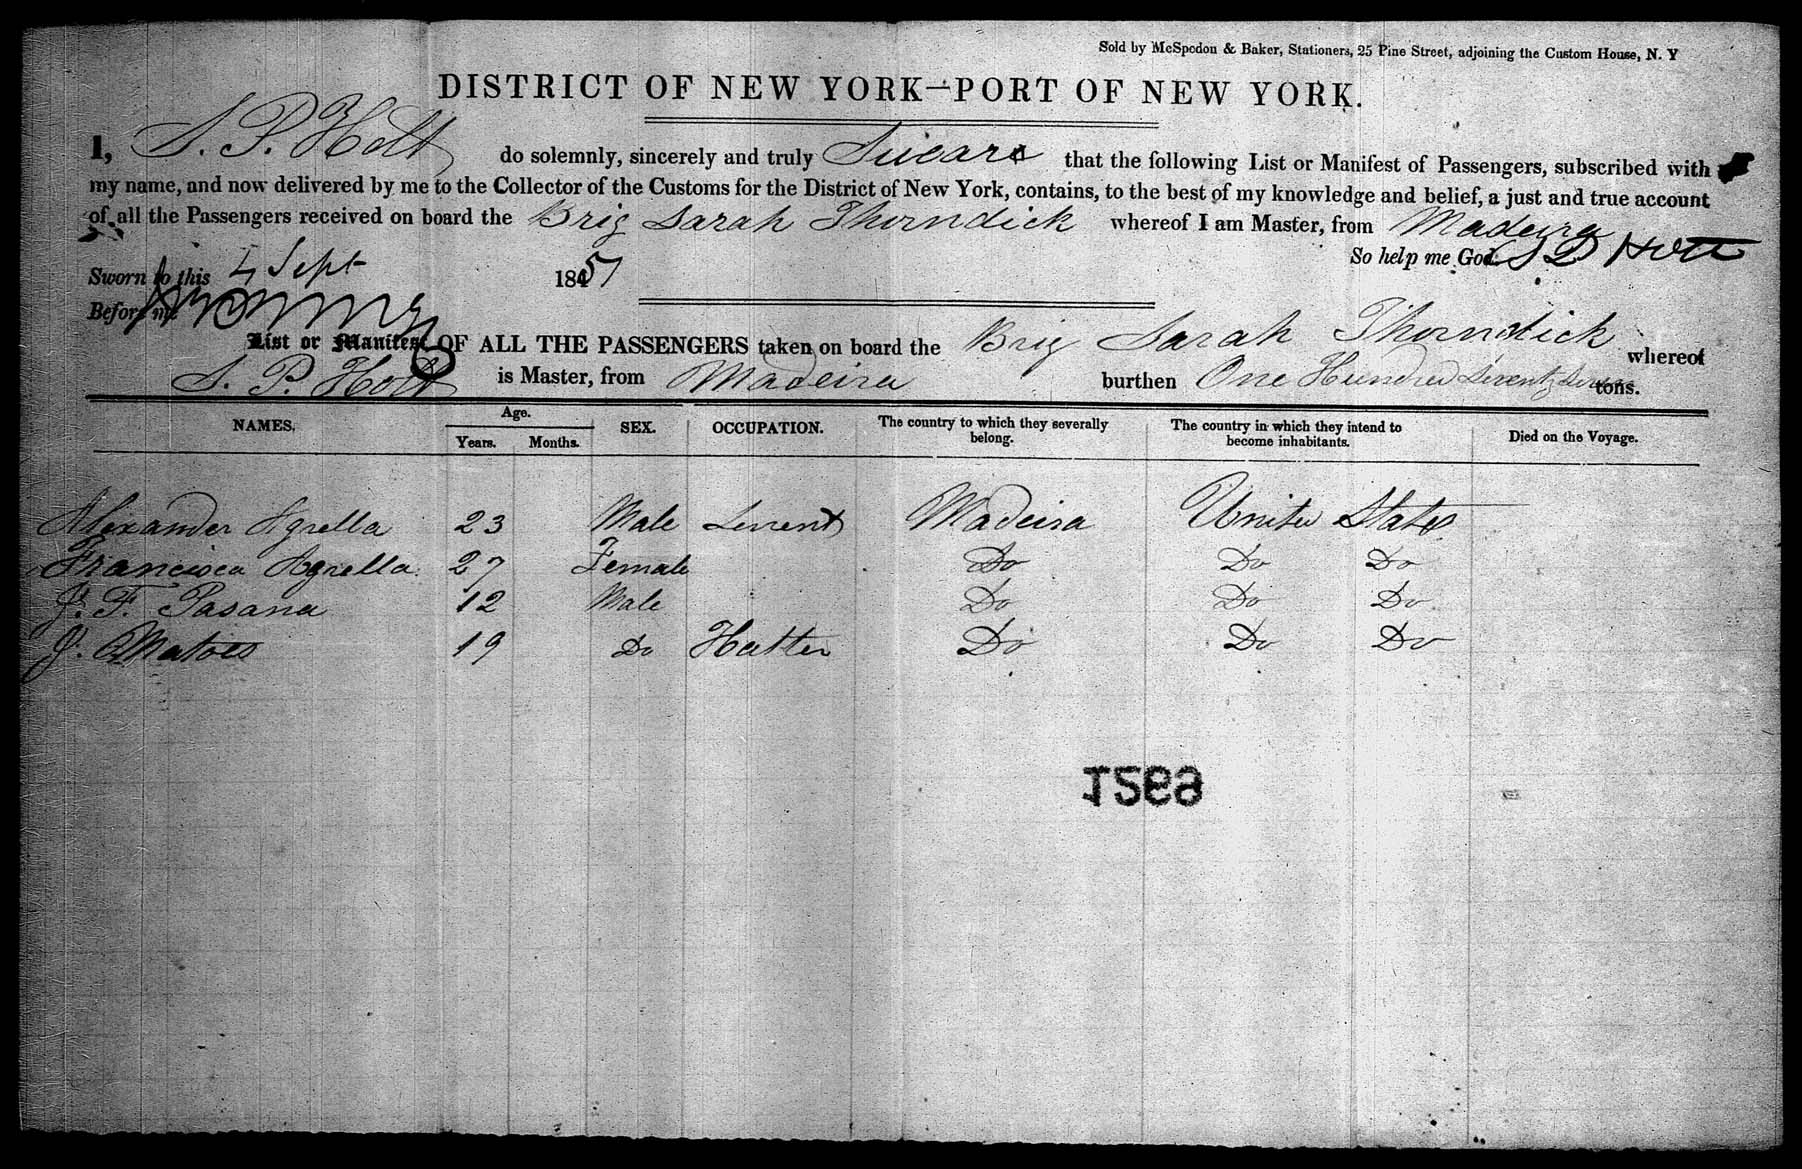 Sold by McSpedon & Baker, Stationers, 25 Pine Street, adjoining the Custom House, N. Y
DISTRICT OF NEW YORK—PORT OF NEW YORK.
I, S. P. Holt do solemnly, sincerely and truly Swear that the following List or Manifest of Passengers, subscribed with
my name, and now delivered by me to the Collector of the Customs for the District of New York, contains, to the best of my knowledge and belief, a just and true account
of all the Passengers received on board the Brig Sarah Thorndick whereof I am Master, from Madeira
So help me God. S P Holt
Sworn to this 4 Sept 1851
Before me
List or Manifest OF ALL THE PASSENGERS taken on board the Brig Sarah Thorndick whereof
S. P. Holt is Master, from Madeira burthen One Hundred Seventy tons.
NAMES. Age. Years. Months. SEX. OCCUPATION. The country to which they severally belong. The country in which they intend to become inhabitants. Died on the Voyage.
Alexander Agrella 23 Male Madeira United States
Francisca Agrella 27 Female Do Do Do
J. F. Pasana 12 Male Do Do Do
J. Matoes 19 Do Hatter Do Do Do